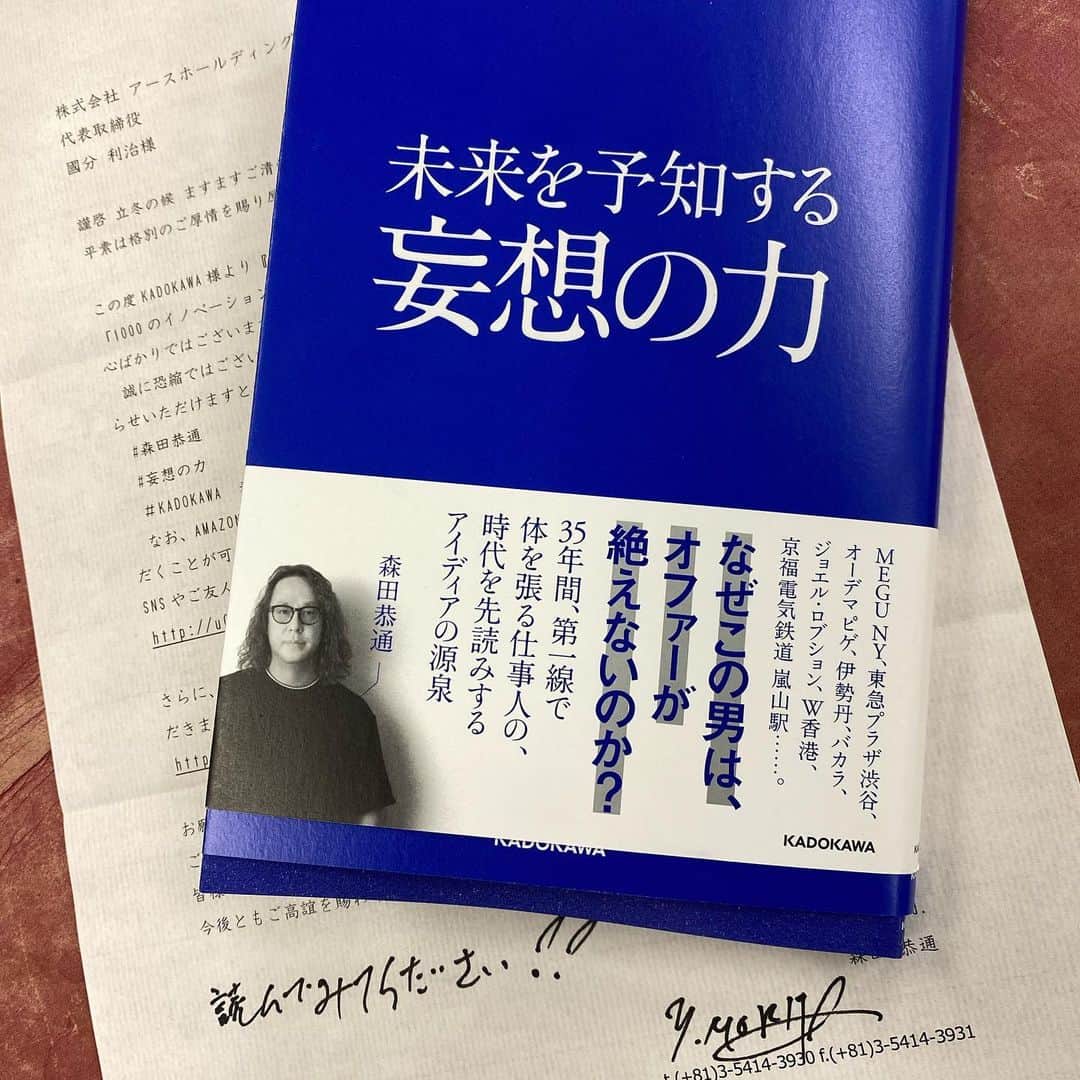 株式会社 アースホールディング
代表取締役
國分 利治様
謹啓 立冬の候 ますますご清
平素は格別のご厚情を賜り厚
この度KADOKAWA様より
「1000のイノベーション
心ばかりではございま
誠に恐縮ではござい
らせいただけますと
#森田恭通
#妄想の力
#KADOKAWA
なお、AMAZON
だくことが可
SNSやご友人
http://u
さらに、
だきま
http
お願
ご
今後ともご高誼を賜わ
読んでみてください!!
森田恭通
Y.MORITA
t.(+81)3-5414-3930 f.(+81)3-5414-3931
未来を予知する
妄想の力
MEGU NY、東急プラザ渋谷、
オーデマピゲ、伊勢丹、バカラ、
ジョエル・ロブション、W香港、
京福電気鉄道 嵐山駅……。
なぜこの男は、
オファーが
絶えないのか?
35年間、第一線で
体を張る仕事人の、
時代を先読みする
アイディアの源泉
森田恭通
KADOKAWA
KADOKAWA